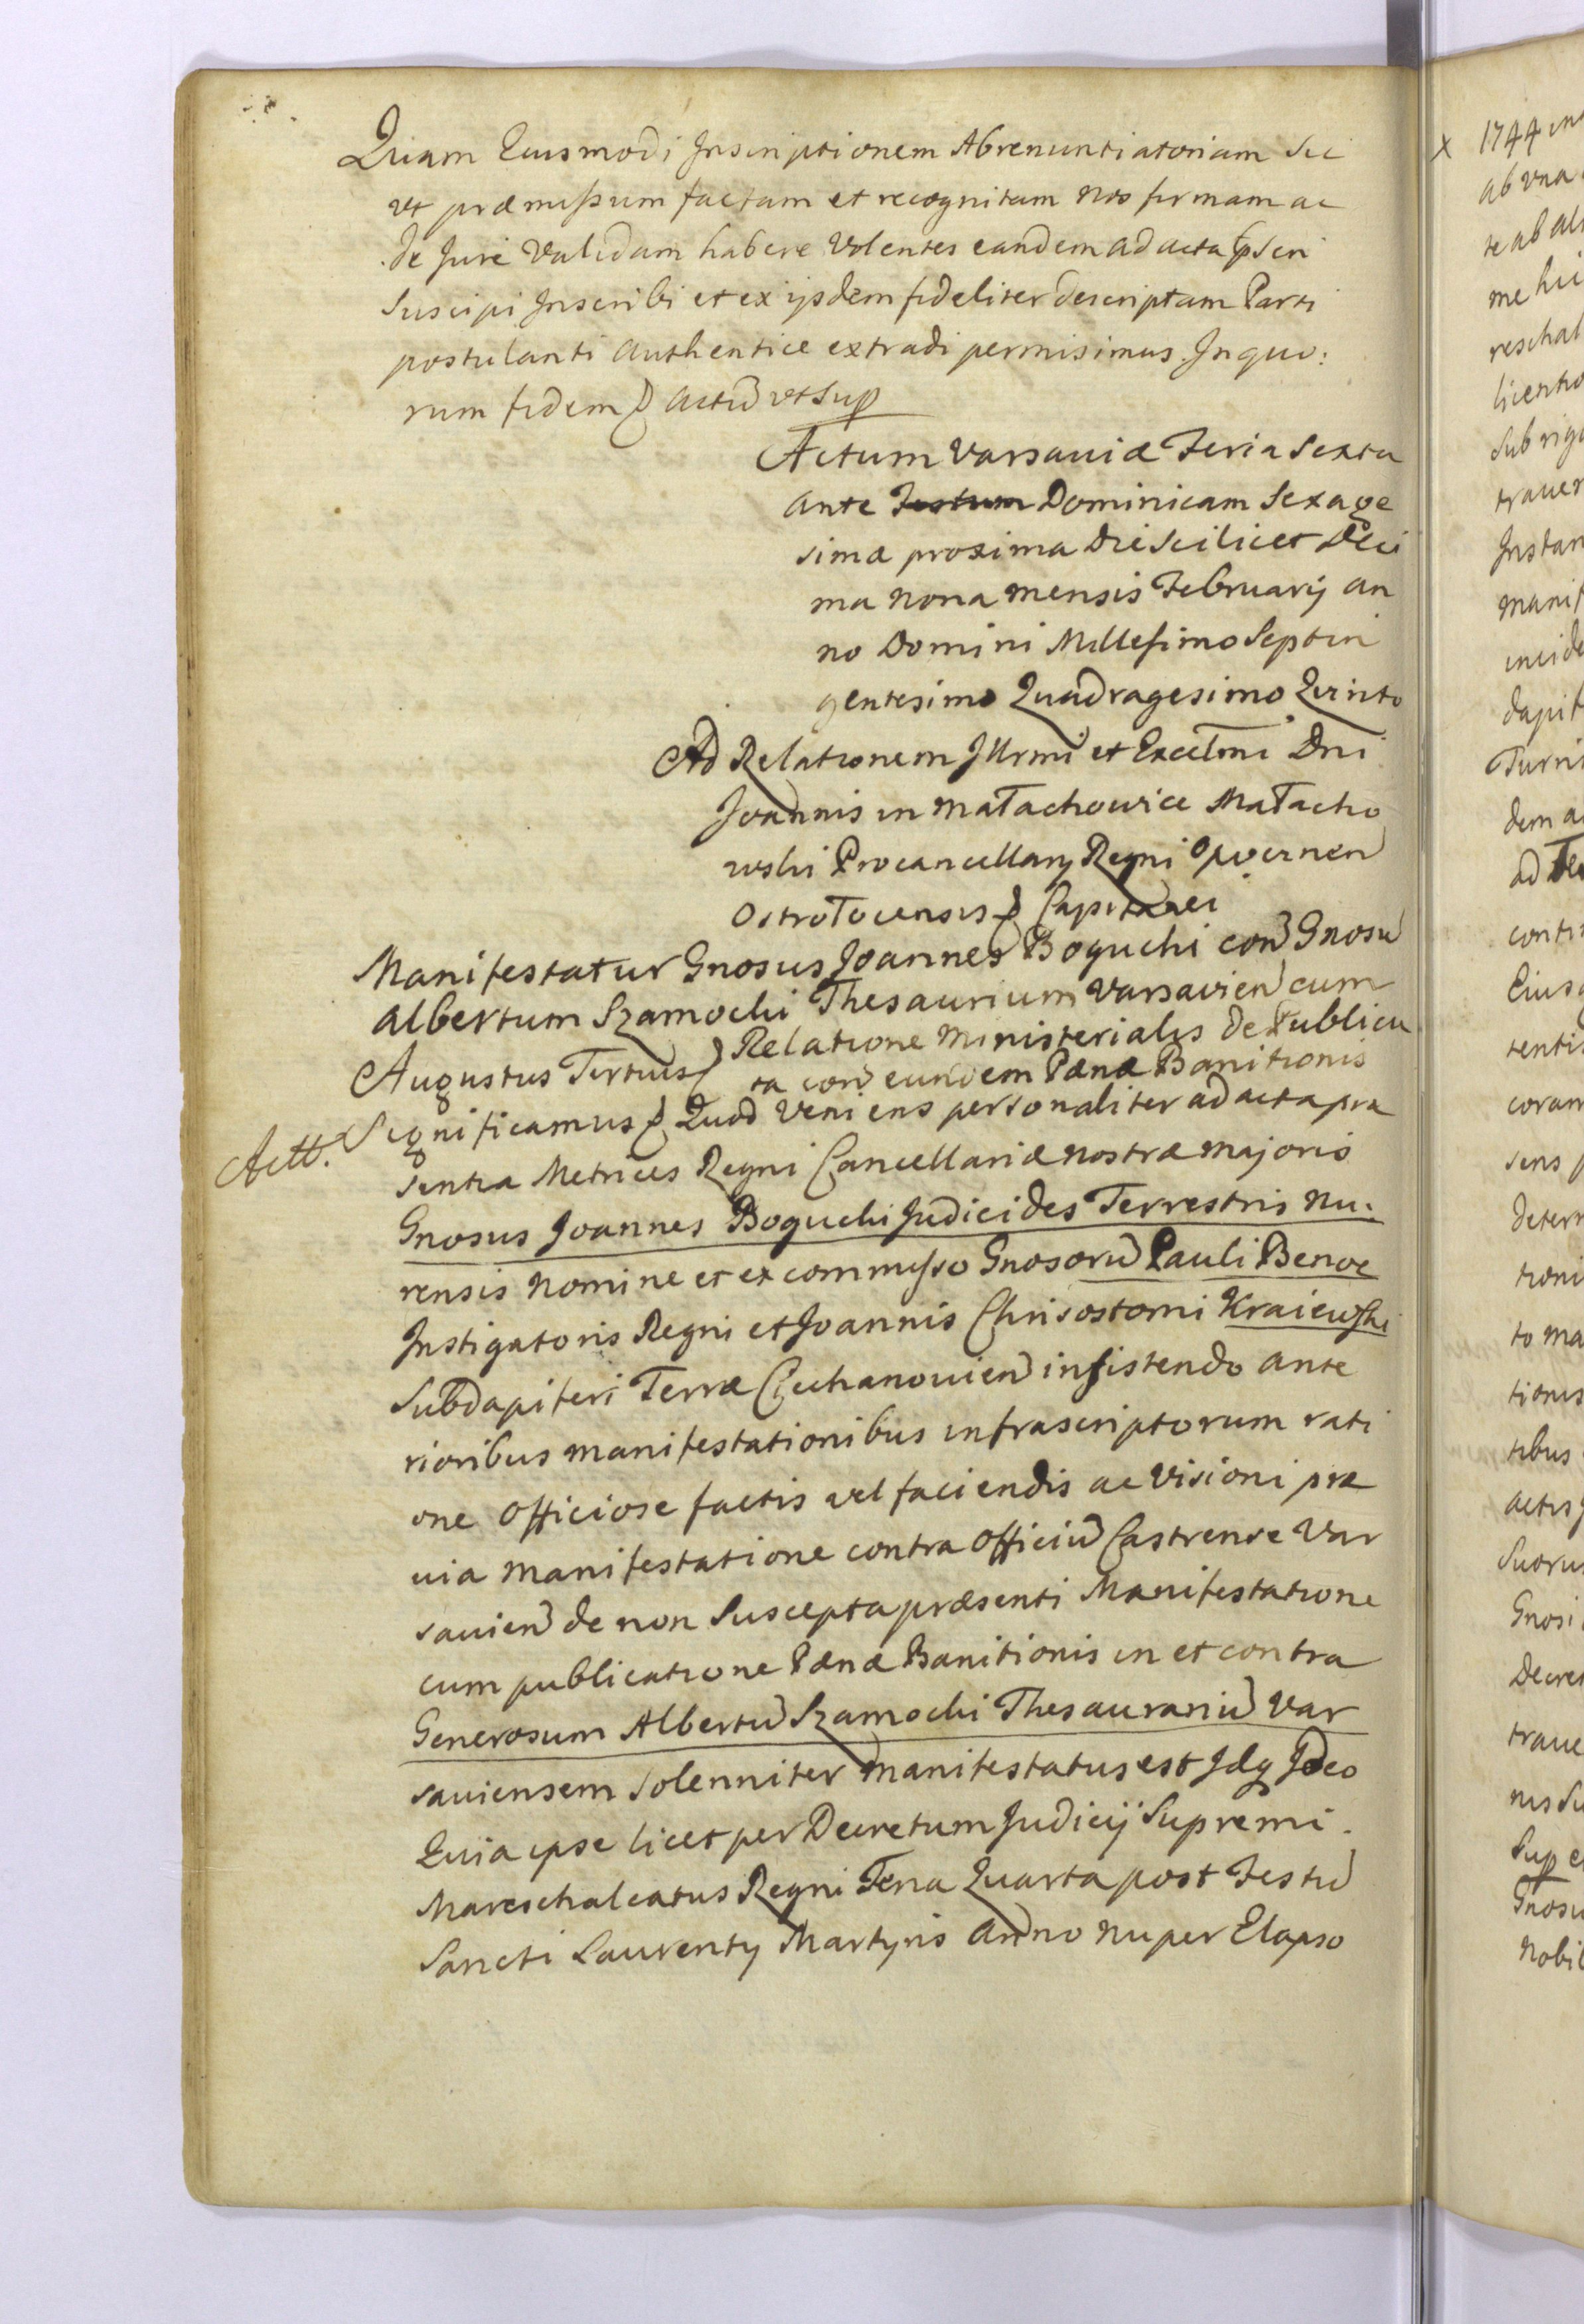 Quam Eiusmodi Inscriptionem Abrenuntiatoriam Sic
ut præmissum factam et recognitam Nos firmam ac
de Jure Validam habere Volentes eandem ad acta
Suscipi Inscribi et ex ijsdem fideliter descriptam Parti
postulanti Authentice extradi permisimus. In quo:
rum fidem Actū ut Sup
Actum Varsaviæ Feria Sexta
ante Festum Dominicam Sexage
simæ proxima Die Scilicet Deci
ma Nona Mensis Februarij An
no Domini Millesimo Septin
gentesimo Quadragesimo Qvinto
Ad Relationem Illrmi et Excellmi Dni
Joannis in Małachowice Małacho
wski Procancellarij Regni Opocznen
Ostrołęcensis Capitanei
Manifestatur Gnosus Joannes Bogucki con Gnosū
Albertum Szamocki Thesaurium Varsavien cum
Relatione Ministerialis de Publica
Augustus Tertius
ta con eundem Pæna Banitionis
Significamus Quod Veniens personaliter ad acta præ
Actt.
sentia Metrices Regni Cancellariæ nostræ Majoris
Gnosus Joannes Bogucki Judicides Terrestris Nu:
rensis Nomine et ex commisso Gnosorū Pauli Benoe
Instigatoris Regni et Joannis Chrisostomi Kraiewski
Subdapiferi Terræ Ciechanovien insistendo ante
rioribus manifestationibus infrascriptorum rati
one Officiose factis vel faciendis ac Visioni præ
via Manifestatione contra Officiū Castrense Var
savien de non Suscepta præsenti Manifestatione
cum publicatione Pænæ Banitionis in et contra
Generosum Albertū Szamocki Thesaurariū Var
saviensem Solenniter Manifestatus est Idq Ideo
Quia ipse licet per Decretum Judicij Supremi
Mareschalcatus Regni Feria Quarta post Festū
Sancti Laurentij Martyris Anno nuper Elapso
x 1744
ab una
te ab
me
Sub
Instan
manif
dapif
dem
ad
coram
sens
to ma
tibus
actis
Gnosi
nobil